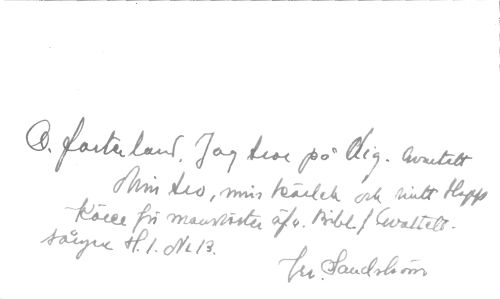 O. fosterland. Jag tror på Dig. Qvartett
Min tro, min kärlek och mitt Hopp
Körer för mansröster äfv. Bibl. f Qvartett-
sångre H. 1. No 13.
Jvr. Sandström